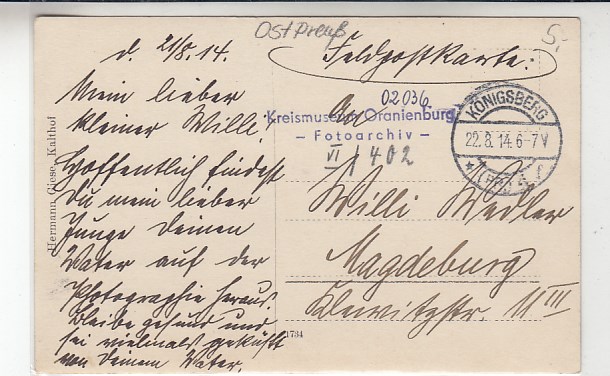 Ostpreuß
5.
d. 21/8.14.
Feldpostkarte:
Mein lieber
kleiner Willi!
Hoffentlich findest
Du mein lieber
Junge Deinen
Vater auf der
Photographie heraus.
Bleibe gesund und
sei vielmals geküßt
von Deinem Vater.
Hermann Giese, Kalthof
02036
Kreismuseum Oranienburg
– Fotoarchiv –
VI / 402
KÖNIGSBERG
22.8.14.6-7V
An
Willi Wedler
Magdeburg
Klewitzstr. 11 III
1734